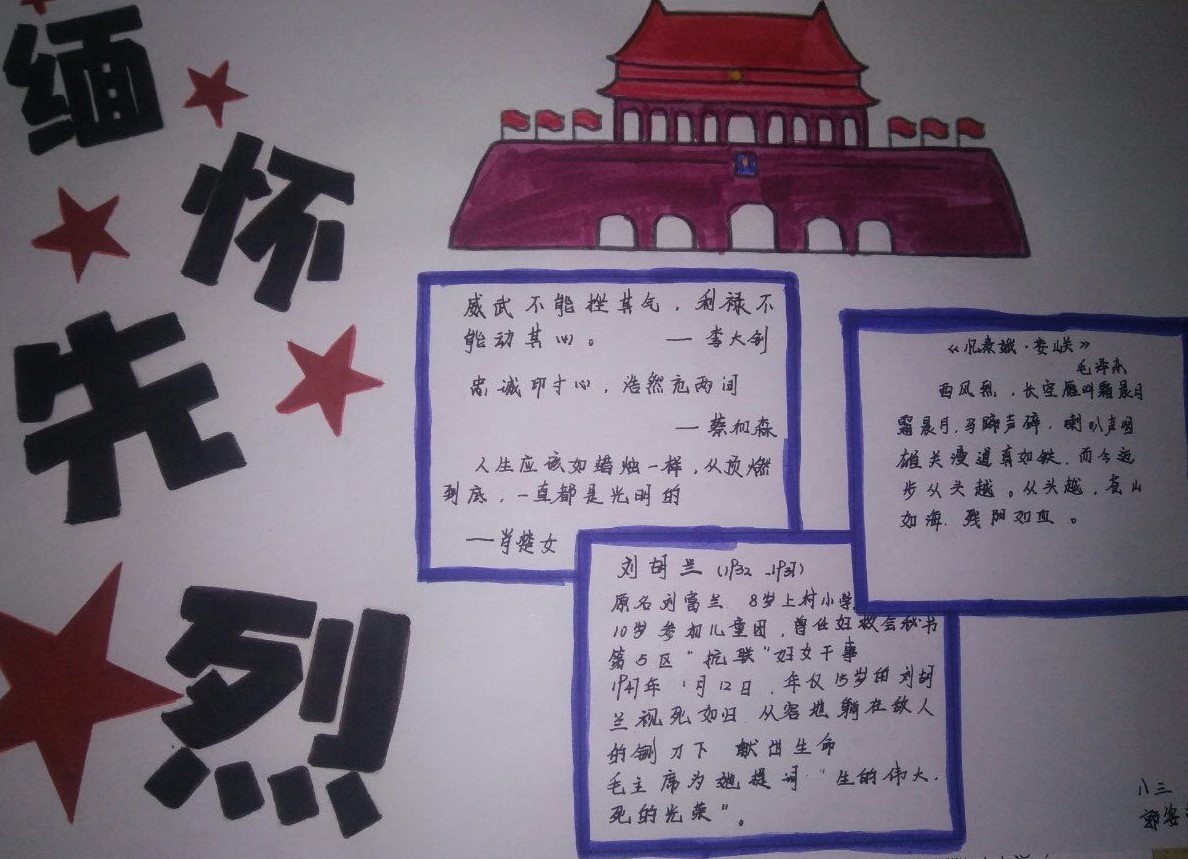 缅
怀
先
烈
威武不能挫其气，利禄不
能动其心。 —李大钊
忠诚印寸心，浩然充两间
—蔡和森
人生应该如蜡烛一样，从顶燃
到底，一直都是光明的
——肖楚女
《忆秦娥·娄山关》
毛泽东
西风烈，长空雁叫霜晨月
霜晨月，马蹄声碎，喇叭声咽
雄关漫道真如铁，而今迈
步从头越。从头越，苍山
如海，残阳如血。
刘胡兰（1932 -1937）
原名刘富兰 8岁上村小学
10岁参加儿童团，曾任妇救会秘书
第5区“抗联”妇女干事
1947年1月12日，年仅15岁的刘胡
兰视死如归 从容地躺在敌人
的铡刀下 献出生命
毛主席为她提词“生的伟大.
死的光荣”。
八三